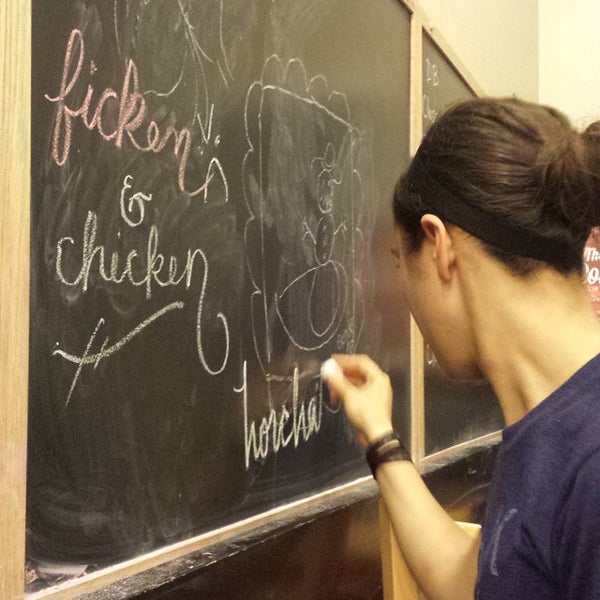 ficken
&
chicken
horcha
DB